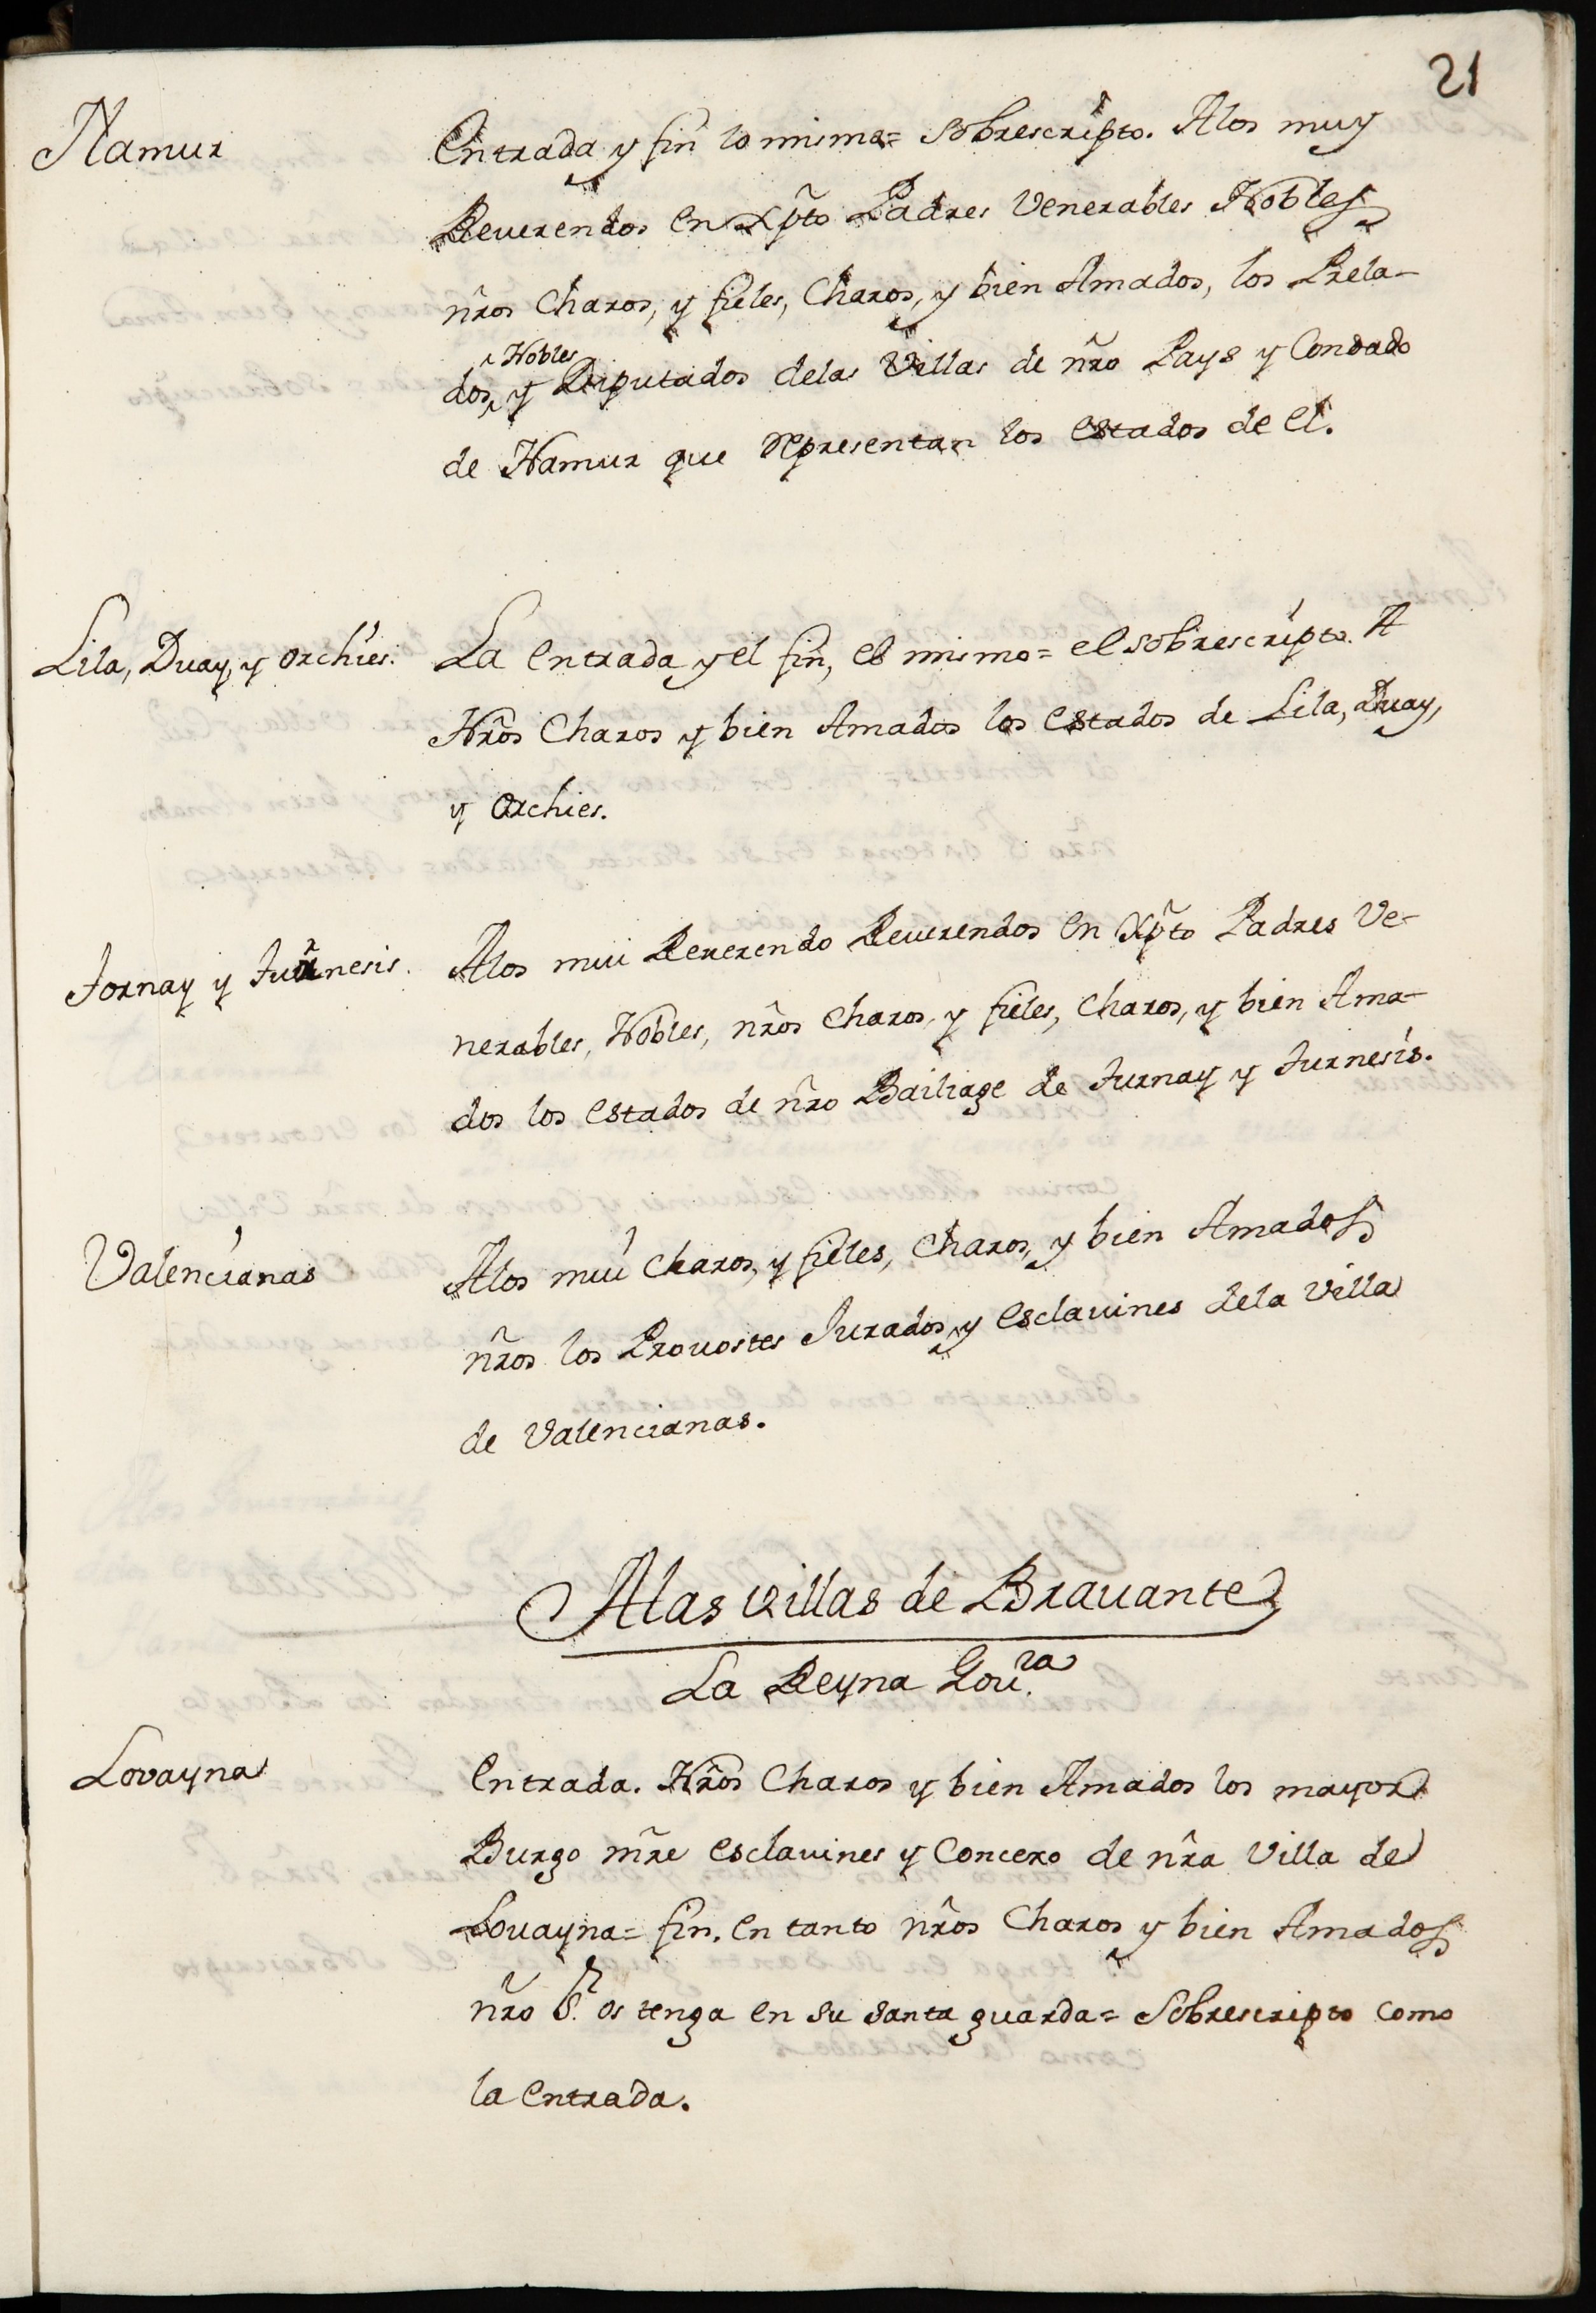 21
Namur
Entrada y fin lo mismo= sobrescripto. Alos muy
Reuerendos en Xp̃to Padres Venerables Nobles
nr̃os Charos, y fieles, Charos, y bien Amados, los Prela-
dos, ^Nobles y Diputados delas Villas de nr̃o Pays y Condado
de Namur que representan los estados de el.
Lila, Duay, y orchies.
La entrada y el fin, es mismo= el sobrescripto. A
Nr̃os Charos y bien Amados los estados de Lila, Duay,
y orchies.
Tornay y Turnesis.
Alos mui Reuerendo Reuerendos en Xp̃to Padres Ve-
nerables, Nobles, nr̃os Charos, y fieles, Charos, y bien Ama-
dos los estados de nr̃o Bailiage de Turnay y Turnesis.
Valencianas
Alos mui Charos, y fieles, Charos, y bien Amados
nr̃os los Prouostes Jurados, y esclauines dela Villa
de Valencianas.
Alas villas de Brauante
La Reyna Gou.ra
Lovayna
entrada. Nr̃os Charos y bien Amados los mayor
Burgo mr̃e esclauines y Concexo de nr̃a Villa de
Louayna= fin. en tanto nr̃os Charos y bien Amados
nr̃o S.r os tenga en su santa guarda= Sobrescripto como
la entrada.